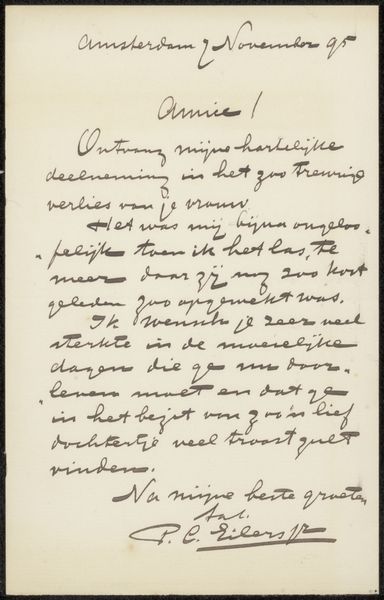 Amsterdam 7 November 95
Amice!
Ontvang mijne hartelijke
deelneming in het zoo treurige
verlies van je vrouw.
Het was mij bijna ongeloo-
"felijk toen ik het las, te
meer daar zij nog zoo kort
geleden zoo opgewekt was.
Ik wensch je zeer veel
sterkte in de moeielijke
dagen die ge nu door-
"leven moet en dat ge
in het bezit van zoo'n lief
dochtertje veel troost zult
vinden.
Na mijne beste groeten
P. C. Eilers Jr